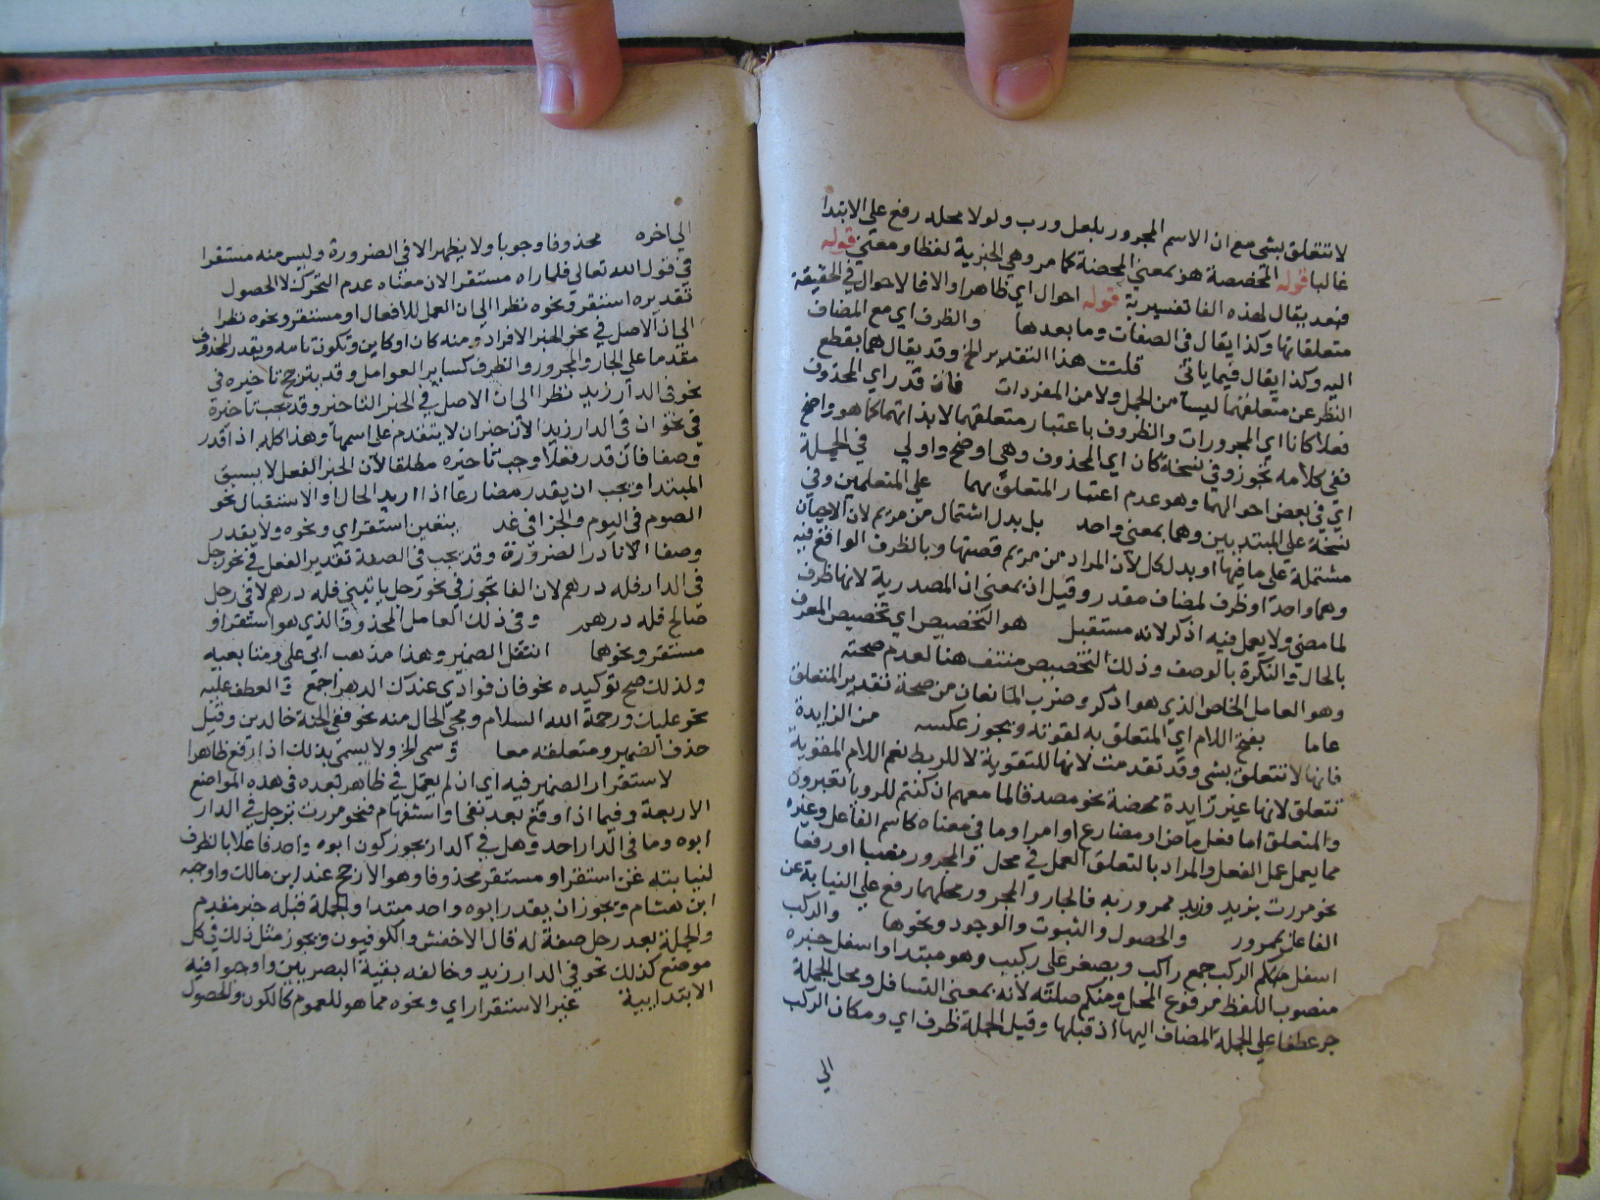 لا تتعلق بشي مع ان الاسم المجرور بلعل ورب ولولا محله رفع علي الابتدا
غالبا قوله المخصصة هو بمعني المحضة كما مر وهي الخبرية لفظا ومعني قوله
فبعد يقال لهذه الفا تفسيرية قوله احوال اي ظاهرا والا فالاحوال في الحقيقة
متعلقاتها وكذا يقال في الصفات وما بعدها والظرف اي مع المضاف
اليه وكذا يقال فيما ياتي قلت هذا التقدير الخ وقد يقال هما بقطع
النظر عن متعلقهما ليسا من الجمل ولا من المفردات فان قدر اي المحذوف
فعلا كانا اي المجرورات والظروف باعتبار متعلقهما لا بذاتهما كما هو واضح
ففي كلامه تجوز وفي نسخة كان اي المحذوف وهي اوضح واولي في الجملة
اي في بعض احوالهما وهو عدم اعتبار المتعلق بهما علي المتعلمين وفي
نسخة علي المبتديين وهما بمعني واحد بل بدل اشتمال من مريم لان الاحيان
مشتملة علي ما فيها او بدل كل لان المراد من مريم قصتها وبالظرف الواقع فيه
وهما واحد او ظرف لمضاف مقدر وقيل اذ بمعني ان المصدرية لانها ظرف
لما مضي ولا يعمل فيه اذكر لانه مستقبل هو التخصيص اي تخصيص المعرف
بالحال والنكرة بالوصف وذلك التخصيص منتف هنا لعدم صحته
وهو العامل الخاص الذي هو اذكر وضرب المانعان من صحة تقدير المتعلق
عاما بفتح اللام اي المتعلق به لقوته ويجوز عكسه من الزايدة
فانها لا تتعلق بشي وقد تقدمت لانها للتقوية لا للربط نعم اللام المقوية
تتعلق لانها غير زايدة محضة نحو مصدقا لما معهم ان كنتم للرويا تعبرون
والمتعلق اما فعل ماض او مضارع او امر او ما في معناه كاسم الفاعل وغيره
مما يعمل عمل الفعل والمراد بالتعلق العمل في محل والمجرور نصبا او رفعا
نحو مررت بزيد وزيد ممرور به فالجار والمجرور محلهما رفع علي النيابة عن
الفاعل بممرور والحصول والثبوت والوجود ونحوها والركب
اسفل منكم الركب جمع راكب ويصغر علي ركيب وهو مبتدا واسفل خبره
منصوب اللفظ مرفوع المحل ومنكم صلته لانه بمعني التسافل ومحل الجملة
جر عطفا علي الجملة المضاف اليها اذ قبلها وقيل الجملة ظرف اي ومكان الركب
الي
الي اخره محذوفا وجوبا ولا يظهر الا في الضرورة وليس منه مستقرا
في قول الله تعالي فلما راه مستقرا لان معناه عدم التحرك لا الحصول
تقديره استقر ونحوه نظرا الي ان العمل للافعال او مستقر ونحوه نظرا
الي ان الاصل في نحو الخبر الافراد ومنه كان او كاين وتكون تامه ويقدر المحذوف
مقدما علي الجار والمجرور والظرف كساير العوامل وقد يترجح تاخيره في
نحو في الدار زيد نظرا الي ان الاصل في الخبر التاخير وقد يجب تاخيره
في نحو ان في الدار زيدا لان خبر ان لا يتقدم علي اسمها وهذا كله اذا قدر
وصفا فان قدر فعلا وجب تاخيره مطلقا لان الخبر الفعل لا يسبق
المبتدا ويجب ان يقدر مضارعا اذا اريد الحال او الاستقبال نحو
الصوم في اليوم والجزا في غد يتعين استقر اي ونحوه ولا يقدر
وصفا الا نادرا لضرورة وقد يجب في الصفة تقدير الفعل في نحو رجل
في الدار فله درهم لان الفا تجوز في نحو رجل ياتيني فله درهم لا في رجل
صالح فله درهم وفي ذلك العامل المحذوف الذي هو استقر او
مستقر ونحوهما انتقل الضمير وهذا مذهب ابي علي ومتابعيه
ولذلك صح توكيده نحو فان فوادي عندك الدهر اجمع والعطف عليه
نحو عليك ورحمة الله السلام ومجي الحال منه نحو ففي الجنة خالدين وقيل
حذف الضمير ومتعلقه معا وسمي لغ ولا يسمي بذلك اذا رفع ظاهرا
لاستقرار الضمير فيه اي ان لم يعمل في ظاهر بعده في هذه المواضع
الاربعة وفيما اذا وقع بعد نفي او استفهام فنحو مررت برجل في الدار
ابوه وما في الدار احد وهل في الدار يجوز كون ابوه واحد فاعلا بالظرف
لنيابته عن استقر او مستقر محذوفا وهو الارجح عند ابن مالك واوجبه
ابن هشام ويجوز ان يقدر ابوه واحد مبتدا والجملة قبله خبر مقدم
والجملة بعد رجل صفة له قال الاخفش والكوفيون ويجوز مثل ذلك في كل
موضع كذلك نحو في الدار زيد وخالفه بقية البصريين واوجبوا فيه
الابتدايية غير الاستقرار اي ونحوه مما هو للعموم كالكون والحصول